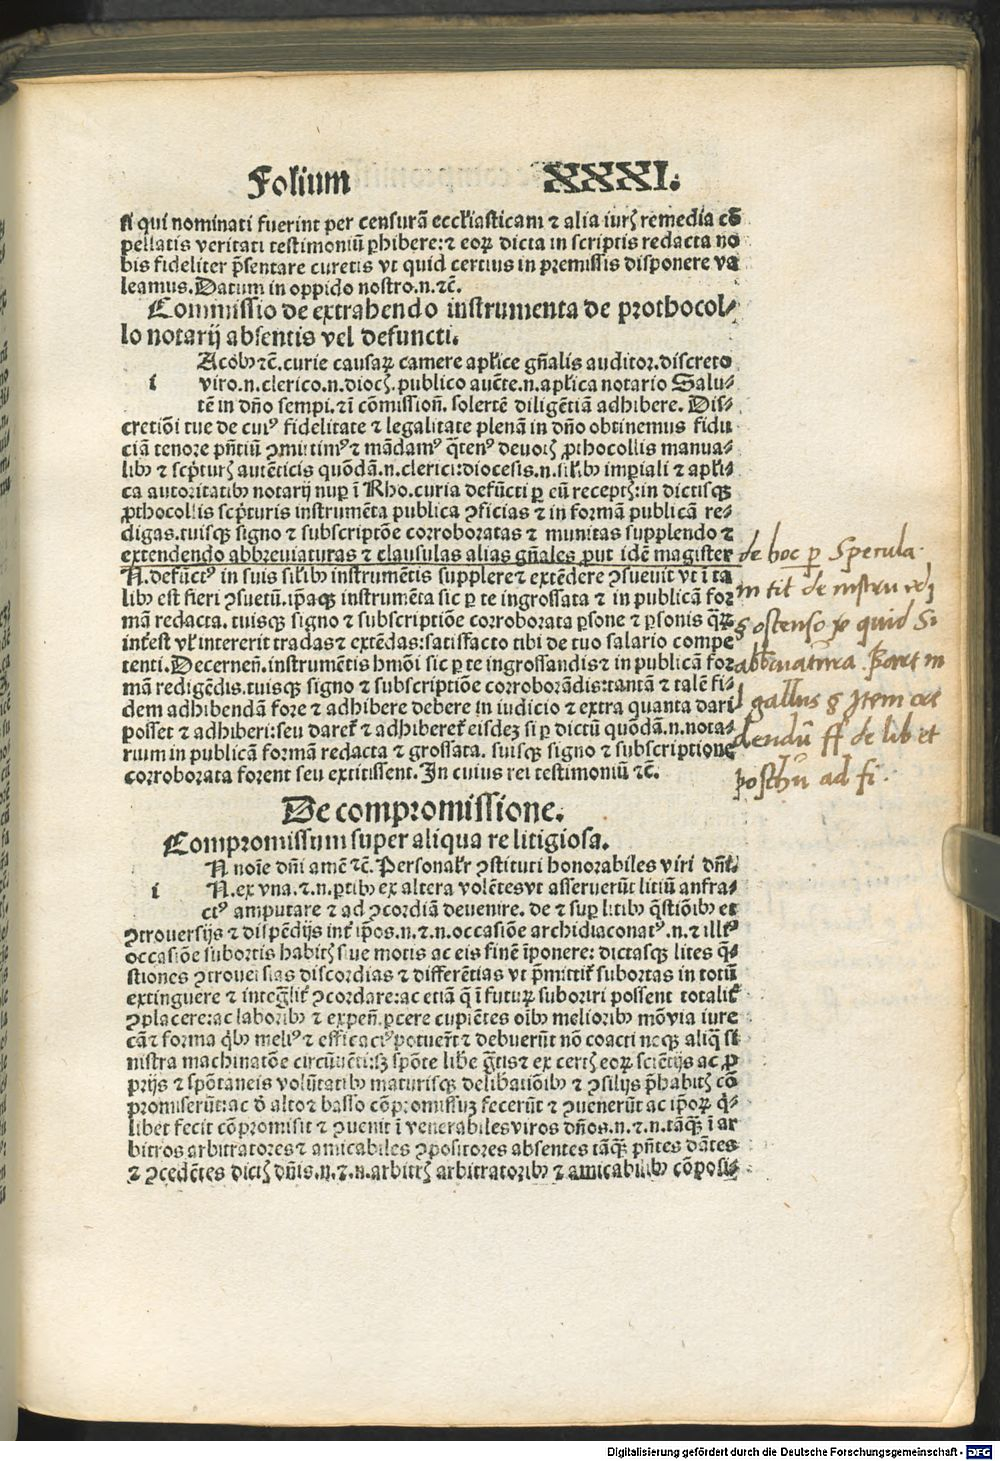 Folium XXXI.
si qui nominati fuerint per censurã eccl'iasticam ⁊ alia iurꝭ remedia cõ
pellatis veritati testimoniũ ꝑhibere: ⁊ eoꝝ dicta in scriptis redacta no
bis fideliter p̃sentare curetis vt quid certius in premissis disponere va
leamus. Datum in oppido nostro .n. ⁊c̃.
Commissio de extrahendo instrumenta de prothocol⸗
lo notarij absentis vel defuncti.
Acobꝰ ⁊c̃. curie causaꝝ camere apl'ice gñalis auditor. discreto
i viro .n. clerico .n. diocꝭ. publico auc̃te .n. apl'ica notario Salu⸗
tẽ in dño sempi. ⁊ ĩ cõmissioñ. solertẽ diligẽtiã adhibere. Dis⸗
cretiõi tue de cuiꝰ fidelitate ⁊ legalitate plenã in dño obtinemus fidu
ciã tenore pñtiũ ꝯmittimꝰ ⁊ mãdamꝰ q̃tenꝰ de ꝓthocollis manua⸗
libꝰ ⁊ sc̃pturꝭ autẽticis quõdã .n. clerici: diocesis .n. sil'ibꝰ impiali ⁊ apl'i⸗
ca autoritatibꝰ notarij nuꝑ ĩ Rho. curia defũcti ꝑ eũ receptꝭ: in dictisqꝫ
ꝓthocollis sc̃pturis instrumẽta publica ꝯficias ⁊ in formã publicã re⸗
digas. tuisqꝫ signo ⁊ subscriptõe corroboratas ⁊ munitas supplendo ⁊
extendendo abbreviaturas ⁊ clausulas alias gñales ꝓut idẽ magister
N. defũctꝰ in suis sil'ibꝰ instrumẽtis supplere ⁊ extẽdere ꝯsuevit vt ĩ ta
libꝰ est fieri ꝯsuetũ. ip̃aqꝫ instrumẽta sic ꝑ te ingrossata ⁊ in publicã for
mã redacta. tuisqꝫ signo ⁊ subscriptiõe corroborata ꝑsone ⁊ ꝑsonis q̃ꝝ
int'est vl' intererit tradas ⁊ extẽdas: satisfacto tibi de tuo salario compe
tenti. Decerneñ. instrumẽtis hmõi sic ꝑ te ingrossandis ⁊ in publicã for
mã redigẽdis. tuisqꝫ signo ⁊ subscriptiõe corroborãdis: tantã ⁊ talẽ fi⸗
dem adhibendã fore ⁊ adhibere debere in iudicio ⁊ extra quanta dari
posset ⁊ adhiberi: seu daret' ⁊ adhiberet' eisdeꝫ si ꝑ dictũ quõdã .n. nota⸗
rium in publicã formã redacta ⁊ grossata. suisqꝫ signo ⁊ subscriptione
corroborata forent seu extitissent. In cuius rei testimoniũ ⁊c̃.
De compromissione.
Compromissum super aliqua re litigiosa.
N noĩe dñi amẽ ⁊c̃. Personal'r ꝯstituti honorabiles viri dñi.
i N. ex vna. ⁊ .n. ꝑtibꝰ ex altera volẽtes vt asseruerũt litiũ anfra⸗
ctꝰ amputare ⁊ ad ꝯcordiã devenire. de ⁊ suꝑ litibꝰ q̃stiõibꝰ et
ꝯtroversijs ⁊ dispẽdijs int' ip̃os .n. ⁊ .n. occasiõe archidiaconatꝰ .n. ⁊ illiꝰ
occasiõe subortis habitꝭ sive motis ac eis finẽ ĩponere: dictasqꝫ lites q̃⸗
stiones ꝯtroversias discordias ⁊ differẽtias vt p̃mittit' subortas in totũ
extinguere ⁊ integ̃lit' ꝯcordare: ac etiã q̃ ĩ futuꝝ suboriri possent totalit'
ꝯplacere: ac laboribꝰ ⁊ expeñ. ꝑcere cupiẽtes oĩbꝰ melioribꝰ mõ via iure
cã ⁊ forma q̃bꝰ meliꝰ ⁊ efficaciꝰ potuer̃t ⁊ debuerũt nõ coacti neqꝫ aliq̃ si
nistra machinatõe circũvẽti: sꝫ spõte libe g̃tis ⁊ ex certꝭ eoꝝ sciẽtijs ac ꝓ
prijs ⁊ spõtaneis volũtatibꝰ maturisqꝫ delibatiõibꝰ ⁊ ꝯsilijs p̃habitꝭ cõ
promiserũt: ac d' alto ⁊ basso cõpromissuꝫ fecerũt ⁊ ꝯuenerũt ac ip̃oꝝ q̃⸗
libet fecit cõpromisit ⁊ ꝯuenit ĩ venerabiles viros dños .n. ⁊ .n. tãqꝫ ĩ ar
bitros arbitratores ⁊ amicabiles ꝯpositores absentes tãqꝫ pñtes dãtes
⁊ ꝯcedẽtes dictꝭ dñis .n. ⁊ .n. arbitrꝭ arbitratoribꝰ ⁊ amicabilibꝰ cõposi⸗
de hoc ꝑ Specula.
in tit de instru edi
§ ostenso ꝟo quid Si
abb̃viatura. Paret in
l gallus § Item cre
dendũ ff de lib et
posthũ ad fi.
Digitalisierung gefördert durch die Deutsche Forschungsgemeinschaft - DFG